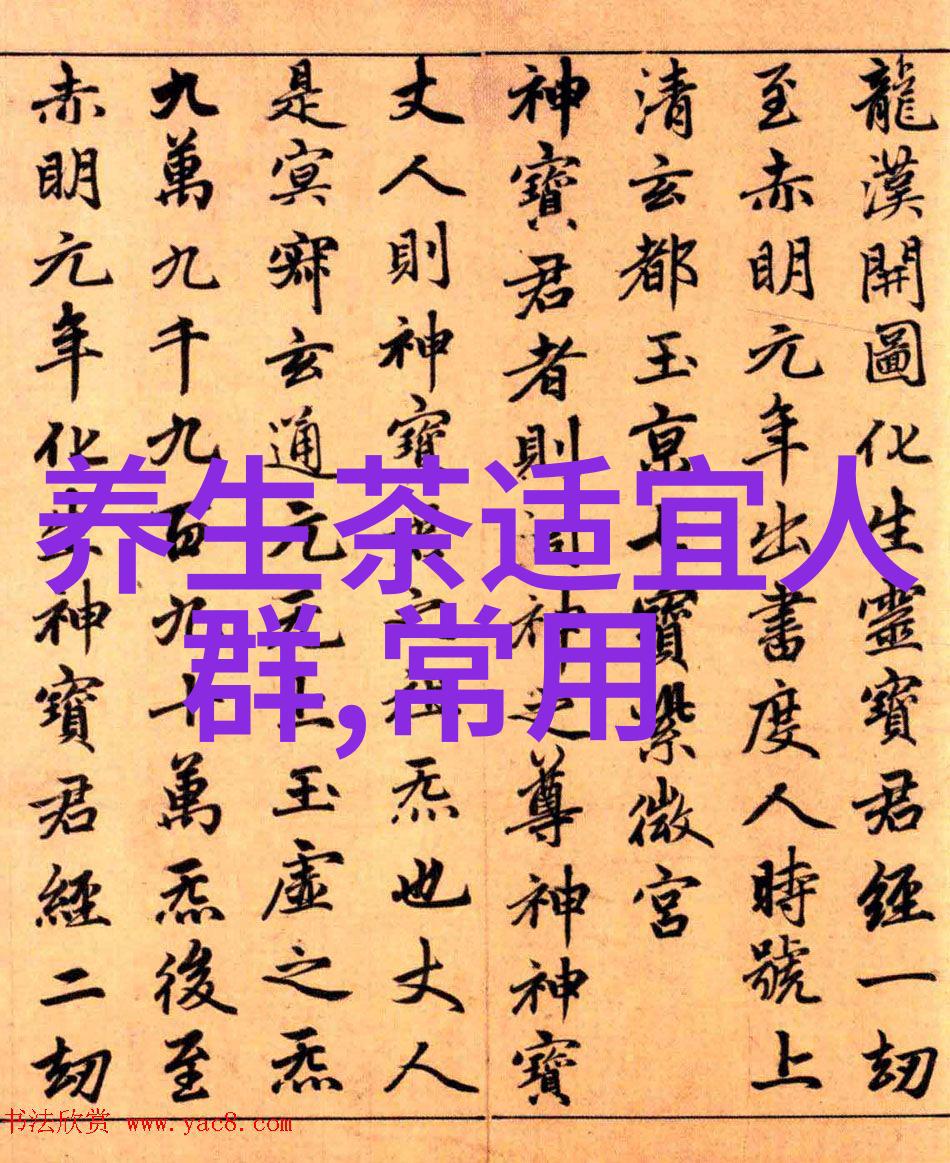 龍漢開圖化生靈寶君經一劫
至赤明元年出書度人時號上
清玄都玉京七寶紫微宮
神寶君者則洞神之尊神神寶
丈人則神寶炁也丈人
是冥寂玄通元无上玉虛之炁
九萬九千九百九十萬炁後至
赤明元年化生神寶君經二劫
养生茶适宜人
群,常用
书法欣赏 www.yac8.com